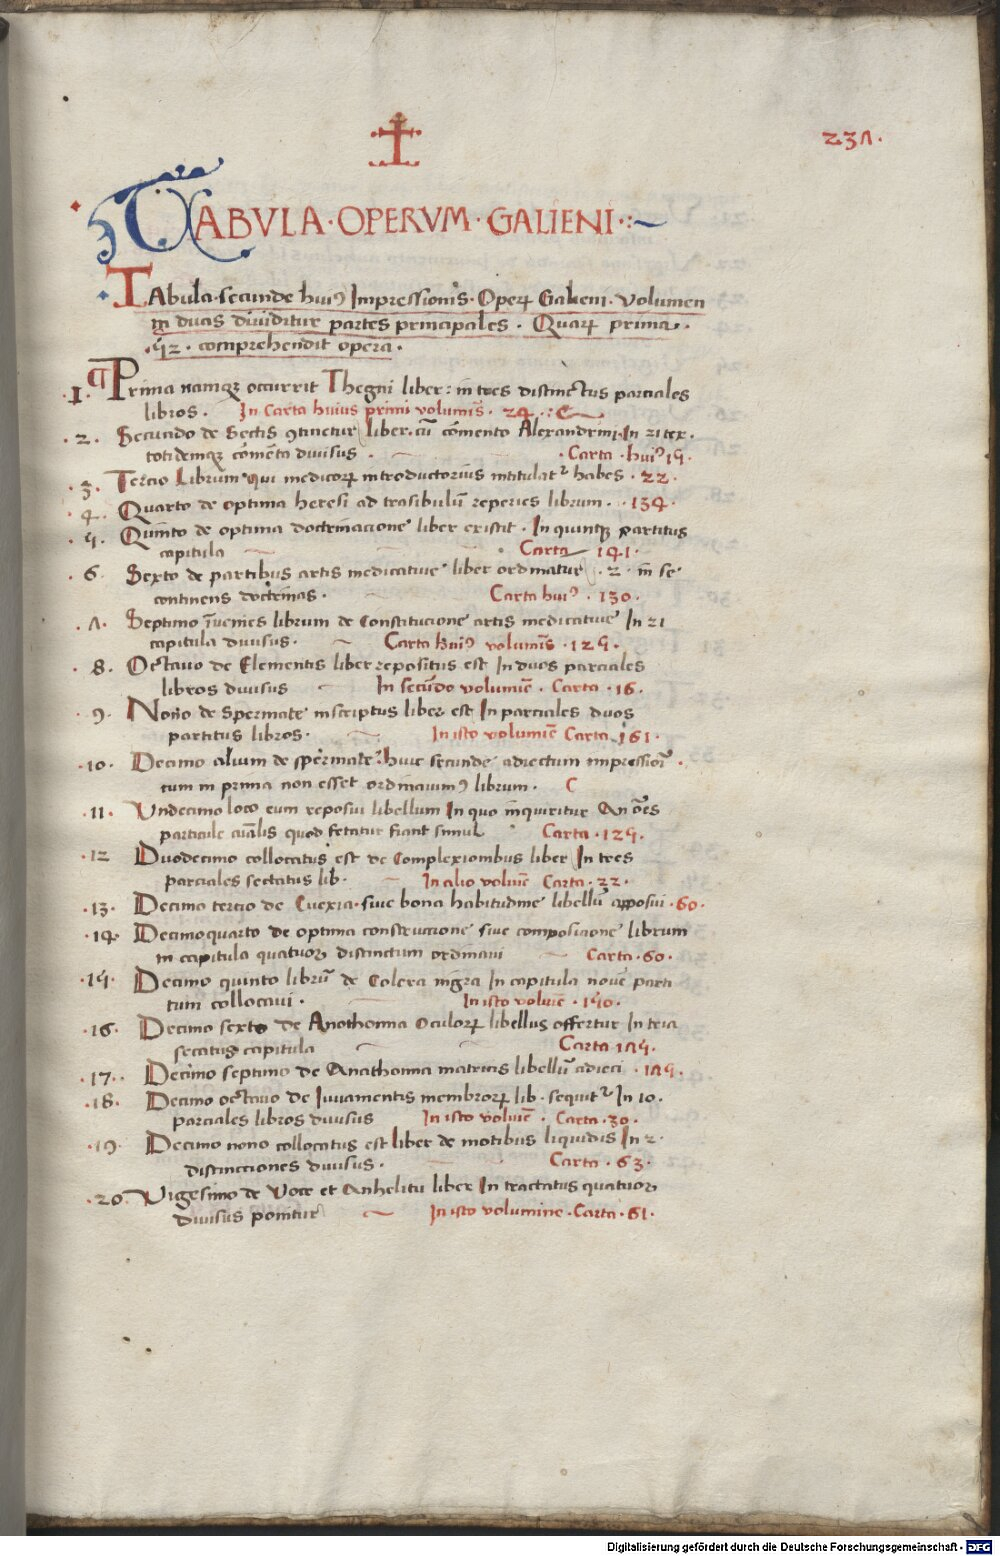 237.
TABVLA·OPERVM·GALIENI·:~
TAbula·secunde huiꝰ Impressionis·Operꝝ Galieni·Volumen
in duas diuiditur partes principales·Quarꝝ prima·
·52·comprehendit opera·
·1·¶Prima namqꝫ occurrit Thegni liber: in tres distinctus parciales
libros·In Carta huius primi voluminis·24·
·2·Secundo de Sectis ꝯtinetur liber·cū cōmento Alexandrini·In 21 tex·
totidemqꝫ cōmēta diuisus·Carta·huiꝰ 15·
·3·Tercio Librum qui medicorꝝ introductorius intitulatr habes·22·
·4·Quarto de optima heresi ad trasibulū reperies librum·134·
·5·Quinto de optima doctrinacione liber existit·In quinqꝫ partitus
capitula Carta 141·
·6·Sexto de partibus artis medicatiue liber ordinatur·2·in se
continens doctrinas·Carta huiꝰ·130·
·7·Septimo īuenies librum de Constitucione artis medicatiue In 21
capitula diuisus·Carta huiꝰ voluminis·125·
·8·Octauo de Elementis liber repositus est In duos parciales
libros diuisus In secūdo volumīe·Carta·16·
·9·Nono de Spermate inscriptus liber est In parciales duos
partitus libros·In isto volumīe Carta 161·
·10·Decimo alium de spermate huic secunde adiectum impression·
cum in prima non esset ordinauimꝰ librum·C
·11·Vndecimo loco eum reposui libellum In quo inquiritur An ōes
particule aīalis quod fetatur fiant simul Carta·125·
·12 Duodecimo collocatus est de Complexionibus liber In tres
parciales sectatus lib·In alio volumē Carta·22·
·13·Decimo tercio de Euexia·siue bona habitudine libellū apposui·60·
·14·Decimoquarto de optima construccione siue composicione librum
in capitula quatuor distinctum ordinaui Carta·60·
·15·Decimo quinto librū de Colera nigra In capitula nouē parti
tum collocaui·In isto volumē·150·
·16·Decimo sexto de Anothomia Oculorꝝ libellus offertur In tria
secatus capitula Carta 175·
·17·Decimo septimo de Anathomia matricis libellū adieci·175·
·18·Decimo octauo de Iuuamentis membrorꝝ lib·sequitr In 10·
parciales libros diuisus In isto volumē·Carta·30·
·19·Decimo nono collocatus est liber de motibus liquidis In 2·
distincciones diuisus·Carta·63·
·20·Vigesimo de Voce et Anhelitu liber In tractatus quatuor
diuisus ponitur In isto volumine·Carta·61·
Digitalisierung gefördert durch die Deutsche Forschungsgemeinschaft · DFG